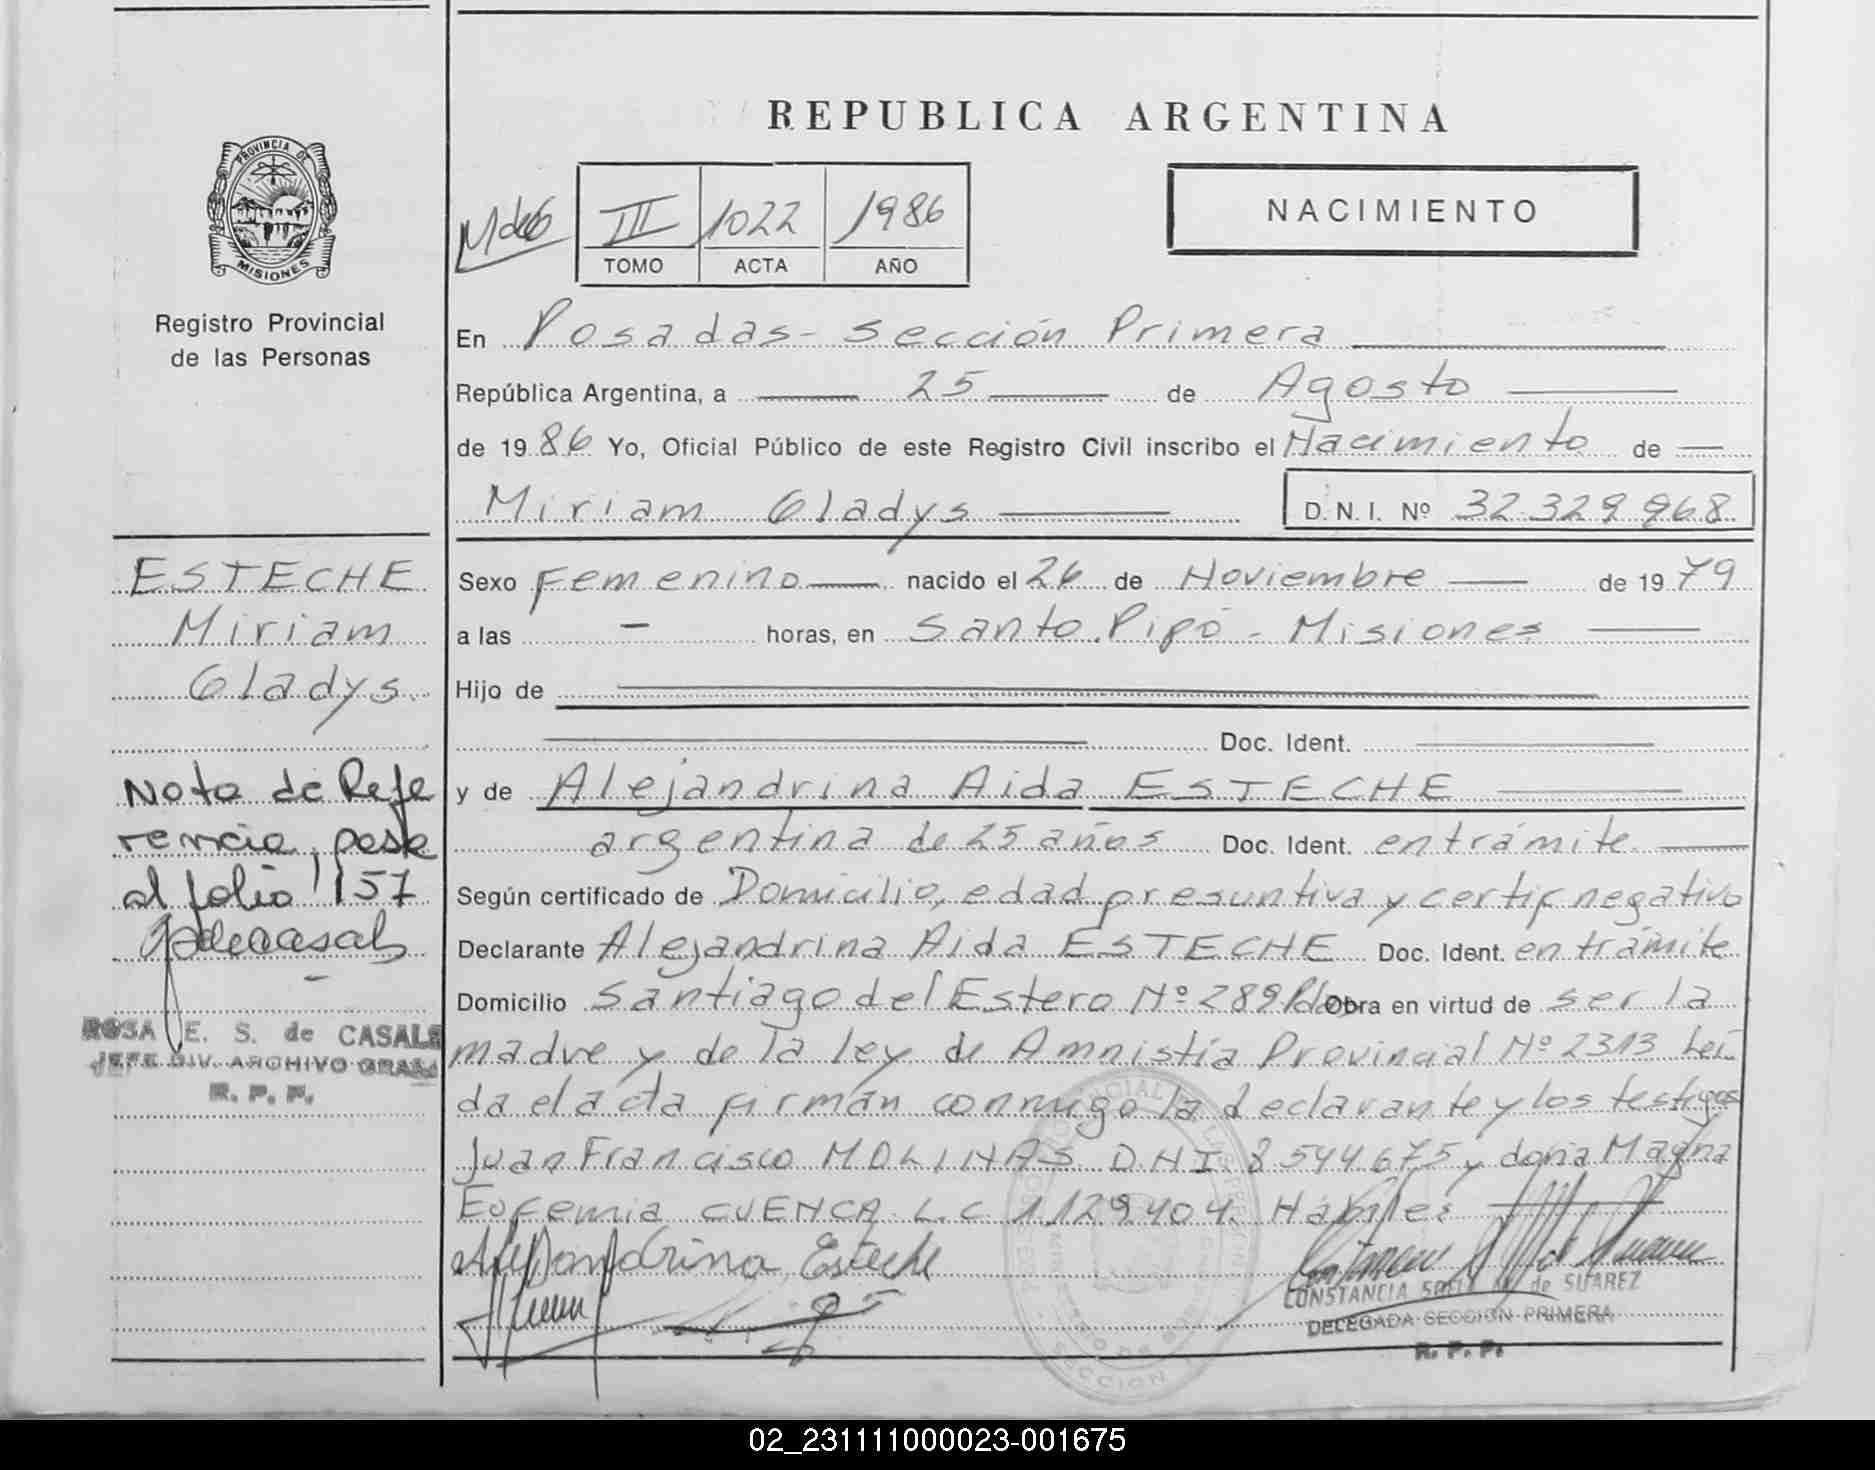 REPUBLICA ARGENTINA
PROVINCIA DE
MISIONES
Registro Provincial
de las Personas
III 1022 1986
TOMO ACTA AÑO
NACIMIENTO
En Posadas - Sección Primera
República Argentina, a 25 de Agosto
de 1986 Yo, Oficial Público de este Registro Civil inscribo el Nacimiento de
Miriam Gladys D.N.I. Nº 32.329.968
ESTECHE
Miriam
Gladys
Nota de Refe
rencia, pase
al folio 157
ROSA E. S. de CASALS
JEFE DIV. ARCHIVO GRAL.
R. P. P.
Sexo Femenino nacido el 26 de Noviembre de 1979
a las - horas, en Santo Pipó - Misiones
Hijo de
Doc. Ident.
y de Alejandrina Aida ESTECHE
argentina de 25 años Doc. Ident. en trámite
Según certificado de Domicilio, edad presuntiva y certif negativo
Declarante Alejandrina Aida ESTECHE Doc. Ident. en trámite
Domicilio Santiago del Estero Nº 289 Pdas Obra en virtud de ser la
madre y de la ley de Amnistía Provincial Nº 2313 Leí
da el acta firman conmigo la declarante y los testigos
Juan Francisco MOLINAS D.N.I 8544675 y doña Magna
Eufemia CUENCA L.C 1129404. Hábiles
Alejandrina Esteche
CONSTANCIA de SUAREZ
DELEGADA SECCION PRIMERA
R. P. P.
SECCION
02_231111000023-001675